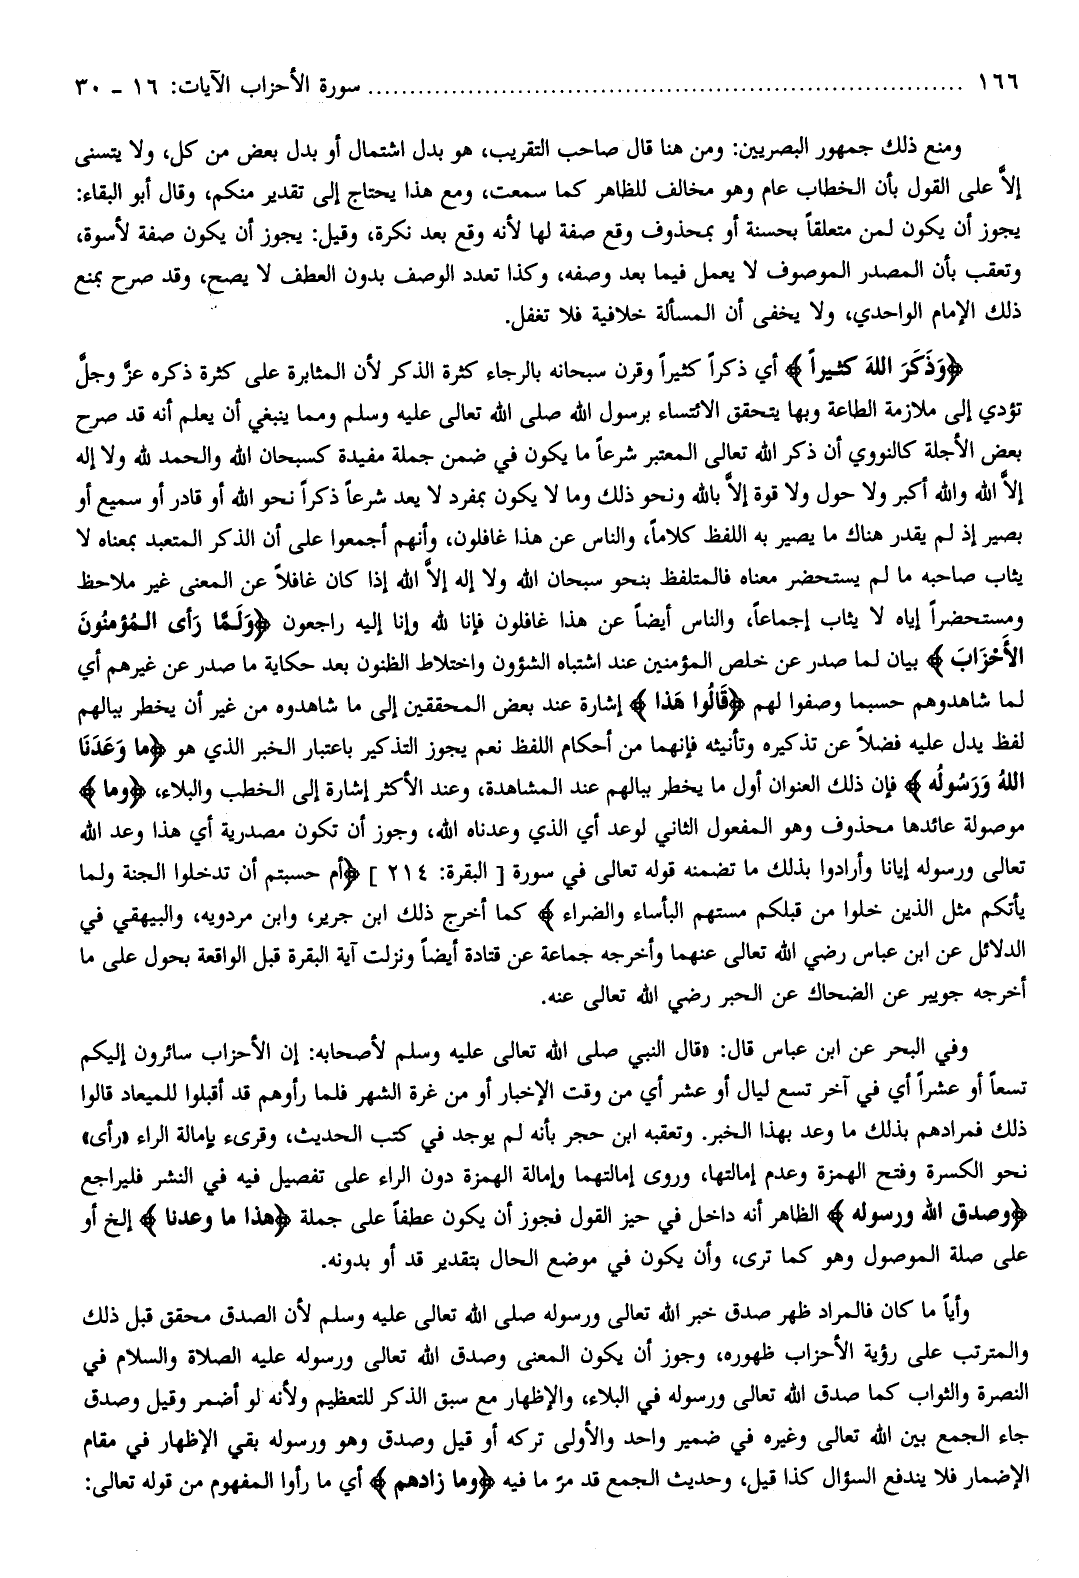 ١٦٦ ........................................................................ سورة الأحزاب الآيات: ١٦ ـ ٣٠
ومنع ذلك جمهور البصريين: ومن هنا قال صاحب التقريب، هو بدل اشتمال أو بدل بعض من كل، ولا يتسنى
إلاَّ على القول بأن الخطاب عام وهو مخالف للظاهر كما سمعت، ومع هذا يحتاج إلى تقدير منكم، وقال أبو البقاء:
يجوز أن يكون لمن متعلقاً بحسنة أو بمحذوف وقع صفة لها لأنه وقع بعد نكرة، وقيل: يجوز أن يكون صفة لأسوة،
وتعقب بأن المصدر الموصوف لا يعمل فيما بعد وصفه، وكذا تعدد الوصف بدون العطف لا يصح، وقد صرح بمنع
ذلك الإمام الواحدي، ولا يخفى أن المسألة خلافية فلا تغفل.
﴿وَذَكَرَ اللهَ كَثيراً﴾ أي ذكراً كثيراً وقرن سبحانه بالرجاء كثرة الذكر لأن المثابرة على كثرة ذكره عزَّ وجلَّ
تؤدي إلى ملازمة الطاعة وبها يتحقق الائتساء برسول الله صلى الله تعالى عليه وسلم ومما ينبغي أن يعلم أنه قد صرح
بعض الأجلة كالنووي أن ذكر الله تعالى المعتبر شرعاً ما يكون في ضمن جملة مفيدة كسبحان الله والحمد لله ولا إله
إلاَّ الله والله أكبر ولا حول ولا قوة إلاَّ بالله ونحو ذلك وما لا يكون بمفرد لا يعد شرعاً ذكراً نحو الله أو قادر أو سميع أو
بصير إذ لم يقدر هناك ما يصير به اللفظ كلاماً، والناس عن هذا غافلون، وأنهم أجمعوا على أن الذكر المتعبد بمعناه لا
يثاب صاحبه ما لم يستحضر معناه فالمتلفظ بنحو سبحان الله ولا إله إلاَّ الله إذا كان غافلاً عن المعنى غير ملاحظ
ومستحضراً إياه لا يثاب إجماعاً، والناس أيضاً عن هذا غافلون فإنا لله وإنا إليه راجعون ﴿وَلَمَّا رَأى المُؤمنُونَ
الأَحْزَابَ﴾ بيان لما صدر عن خلص المؤمنين عند اشتباه الشؤون واختلاط الظنون بعد حكاية ما صدر عن غيرهم أي
لما شاهدوهم حسبما وصفوا لهم ﴿قَالُوا هَذا﴾ إشارة عند بعض المحققين إلى ما شاهدوه من غير أن يخطر ببالهم
لفظ يدل عليه فضلاً عن تذكيره وتأنيثه فإنهما من أحكام اللفظ نعم يجوز التذكير باعتبار الخبر الذي هو ﴿ما وَعَدَنَا
اللهُ وَرَسُولُه﴾ فإن ذلك العنوان أول ما يخطر ببالهم عند المشاهدة، وعند الأكثر إشارة إلى الخطب والبلاء، ﴿وما﴾
موصولة عائدها محذوف وهو المفعول الثاني لوعد أي الذي وعدناه الله، وجوز أن تكون مصدرية أي هذا وعد الله
تعالى ورسوله إيانا وأرادوا بذلك ما تضمنه قوله تعالى في سورة [ البقرة: ٢١٤ ] ﴿أم حسبتم أن تدخلوا الجنة ولما
يأتكم مثل الذين خلوا من قبلكم مستهم البأساء والضراء﴾ كما أخرج ذلك ابن جرير، وابن مردويه، والبيهقي في
الدلائل عن ابن عباس رضي الله تعالى عنهما وأخرجه جماعة عن قتادة أيضاً ونزلت آية البقرة قبل الواقعة بحول على ما
أخرجه جويبر عن الضحاك عن الحبر رضي الله تعالى عنه.
وفي البحر عن ابن عباس قال: «قال النبي صلى الله تعالى عليه وسلم لأصحابه: إن الأحزاب سائرون إليكم
تسعاً أو عشراً أي في آخر تسع ليال أو عشر أي من وقت الإخبار أو من غرة الشهر فلما رأوهم قد أقبلوا للميعاد قالوا
ذلك فمرادهم بذلك ما وعد بهذا الخبر. وتعقبه ابن حجر بأنه لم يوجد في كتب الحديث، وقرىء بإمالة الراء «رأى»
نحو الكسرة وفتح الهمزة وعدم إمالتها، وروى إمالتهما وإمالة الهمزة دون الراء على تفصيل فيه في النشر فليراجع
﴿وصدق الله ورسوله﴾ الظاهر أنه داخل في حيز القول فجوز أن يكون عطفاً على جملة ﴿هذا ما وعدنا﴾ إلخ أو
على صلة الموصول وهو كما ترى، وأن يكون في موضع الحال بتقدير قد أو بدونه.
وأياً ما كان فالمراد ظهر صدق خبر الله تعالى ورسوله صلى الله تعالى عليه وسلم لأن الصدق محقق قبل ذلك
والمترتب على رؤية الأحزاب ظهوره، وجوز أن يكون المعنى وصدق الله تعالى ورسوله عليه الصلاة والسلام في
النصرة والثواب كما صدق الله تعالى ورسوله في البلاء، والإظهار مع سبق الذكر للتعظيم ولأنه لو أضمر وقيل وصدق
جاء الجمع بين الله تعالى وغيره في ضمير واحد والأولى تركه أو قيل وصدق وهو ورسوله بقي الإظهار في مقام
الإضمار فلا يندفع السؤال كذا قيل، وحديث الجمع قد مرّ ما فيه ﴿وما زادهم﴾ أي ما رأوا المفهوم من قوله تعالى: